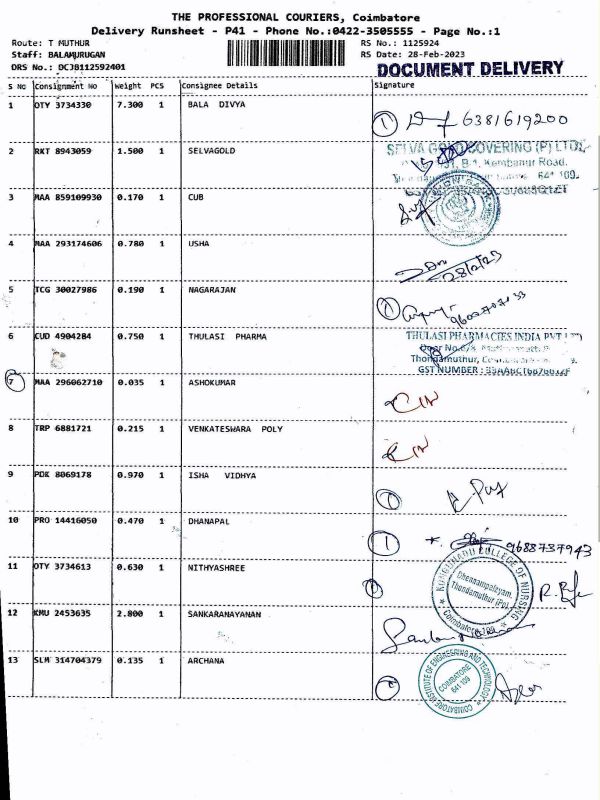 THE PROFESSIONAL COURIERS, Coimbatore
Delivery Runsheet - P41 - Phone No.:0422-3505555 - Page No.:1
Route: T MUTHUR RS No.: 1125924
Staff: BALAMURUGAN RS Date: 28-Feb-2023
DRS No.: DCJB112592401 DOCUMENT DELIVERY
S No Consignment No Weight PCS Consignee Details Signature
1 OTY 3734330 7.300 1 BALA DIVYA
1 6381619200
2 RKT 8943059 1.500 1 SELVAGOLD
SELVA GOLD COVERING (P) LTD
Kembanur Road.
3 MAA 859109930 0.170 1 CUB
4 MAA 293174606 0.780 1 USHA
28/2/23
5 TCG 30027986 0.190 1 NAGARAJAN
6 CUD 4904284 0.750 1 THULASI PHARMA
THULASI PHARMACIES INDIA PVT LTD
Thondamuthur,
GST NUMBER :
7 MAA 296062710 0.035 1 ASHOKUMAR
8 TRP 6881721 0.215 1 VENKATESWARA POLY
9 PDK 8069178 0.970 1 ISHA VIDHYA
10 PRO 14416050 0.470 1 DHANAPAL
1 9688737943
11 OTY 3734613 0.630 1 NITHYASHREE
KONGUNADU COLLEGE OF NURSING
Dhennampalayam,
Thondamuthur (Po)
Coimbatore
12 KMU 2453635 2.800 1 SANKARANAYANAN
13 SLM 314704379 0.135 1 ARCHANA
COIMBATORE INSTITUTE OF ENGINEERING AND TECHNOLOGY
COIMBATORE
641 109